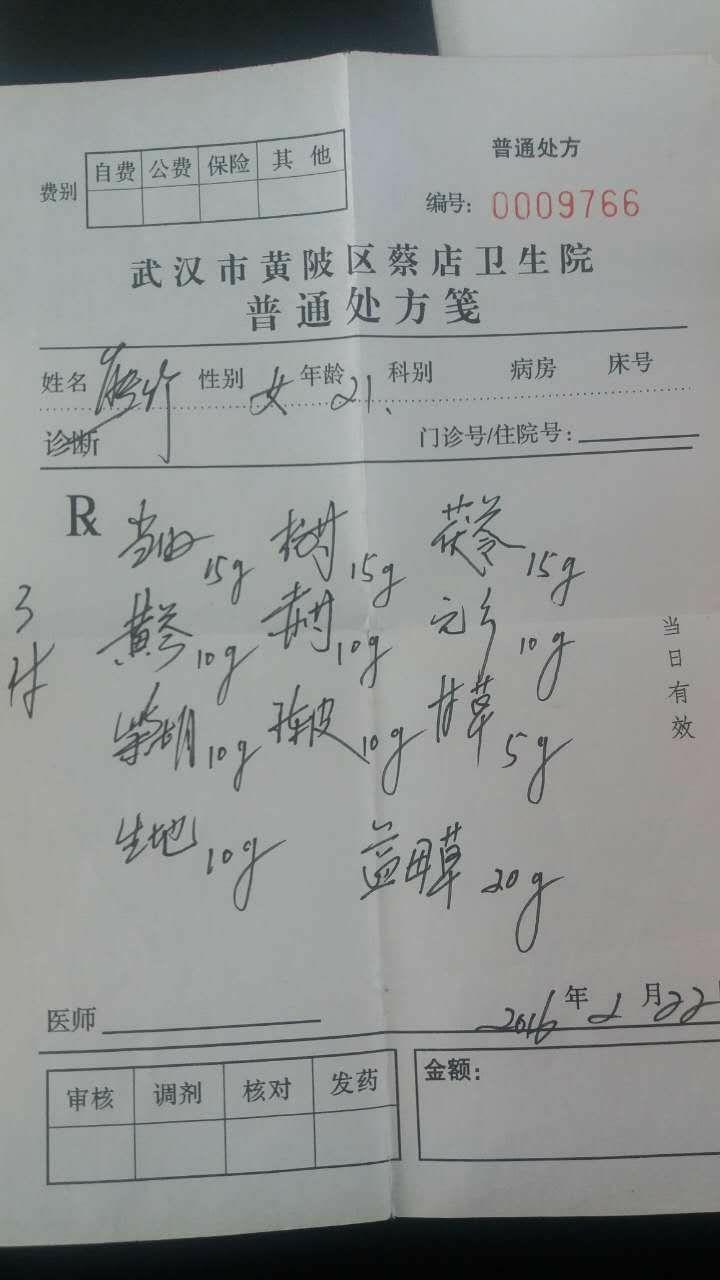 普通处方
费别 自费 公费 保险 其他
编号: 0009766
武汉市黄陂区蔡店卫生院
普通处方笺
姓名 性别 女 年龄 21. 科别 病房 床号
诊断 门诊号/住院号:
R 当归 15g 15g 茯苓 15g
黄芩 10g 赤芍 10g 10g
3付
柴胡 10g 陈皮 10g 甘草 5g
生地 10g 益母草 20g
当日有效
医师 2016年2月22
审核 调剂 核对 发药
金额: